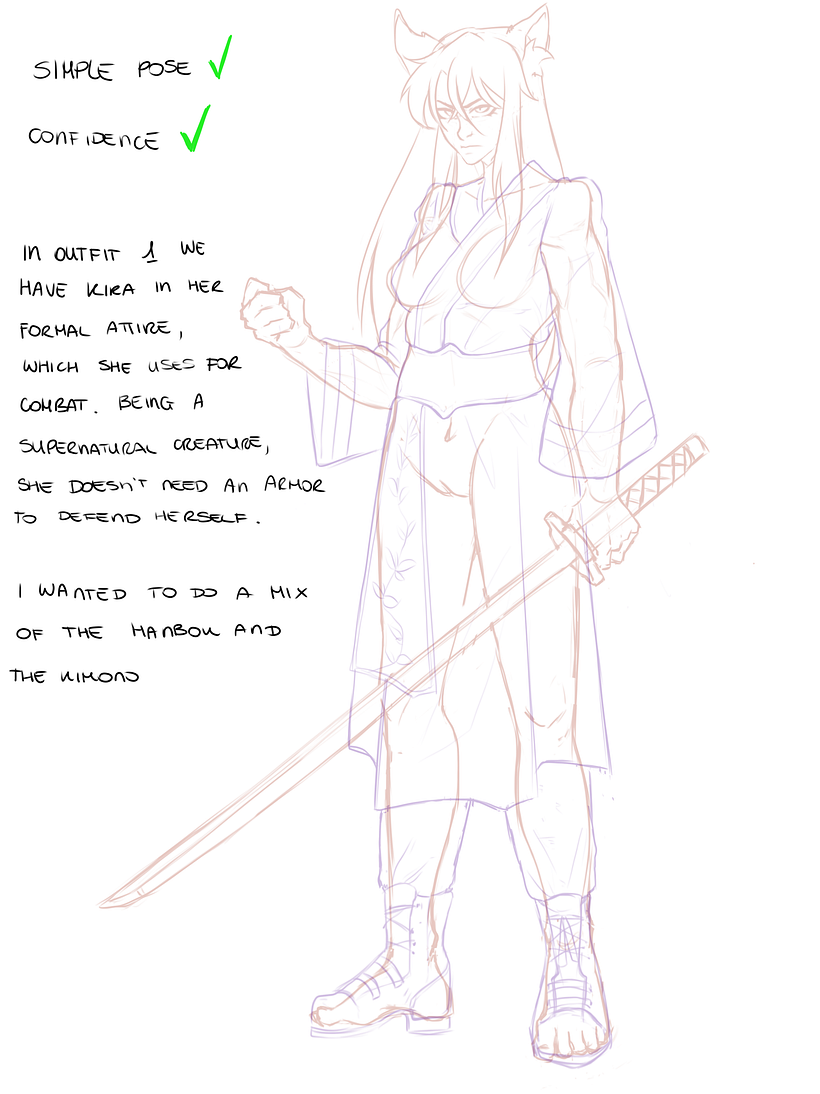 SIMPLE POSE
CONFIDENCE
IN OUTFIT 1 WE
HAVE KIRA IN HER
FORMAL ATTIRE,
WHICH SHE USES FOR
COMBAT. BEING A
SUPERNATURAL CREATURE,
SHE DOESN'T NEED AN ARMOR
TO DEFEND HERSELF.
I WANTED TO DO A MIX
OF THE HANBOK AND
THE KIMONO